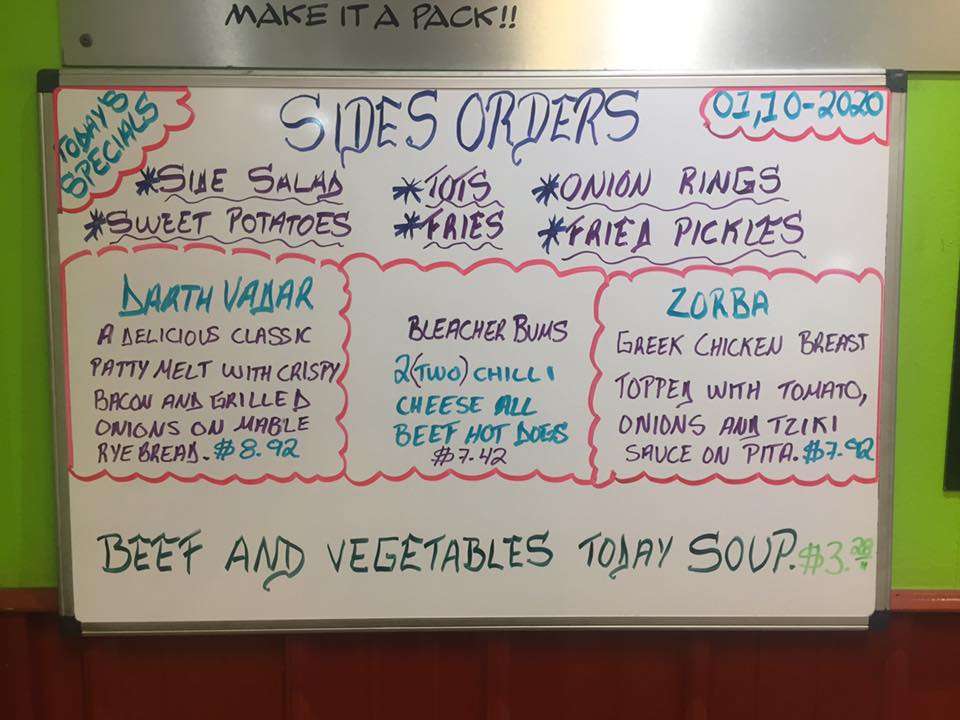 MAKE IT A PACK!!
TODAY'S
SPECIALS
SIDES ORDERS
01,10-2020
*SIDE SALAD *TOTS *ONION RINGS
*SWEET POTATOES *FRIES *FRIED PICKLES
DARTH VADAR
A DELICIOUS CLASSIC
PATTY MELT WITH CRISPY
BACON AND GRILLED
ONIONS ON MABLE
RYE BREAD. $8.92
BLEACHER BUMS
2(TWO) CHILLI
CHEESE ALL
BEEF HOT DOGS
$7.42
ZORBA
GREEK CHICKEN BREAST
TOPPED WITH TOMATO,
ONIONS AND TZIKI
SAUCE ON PITA. $7.92
BEEF AND VEGETABLES TODAY SOUP. $3.